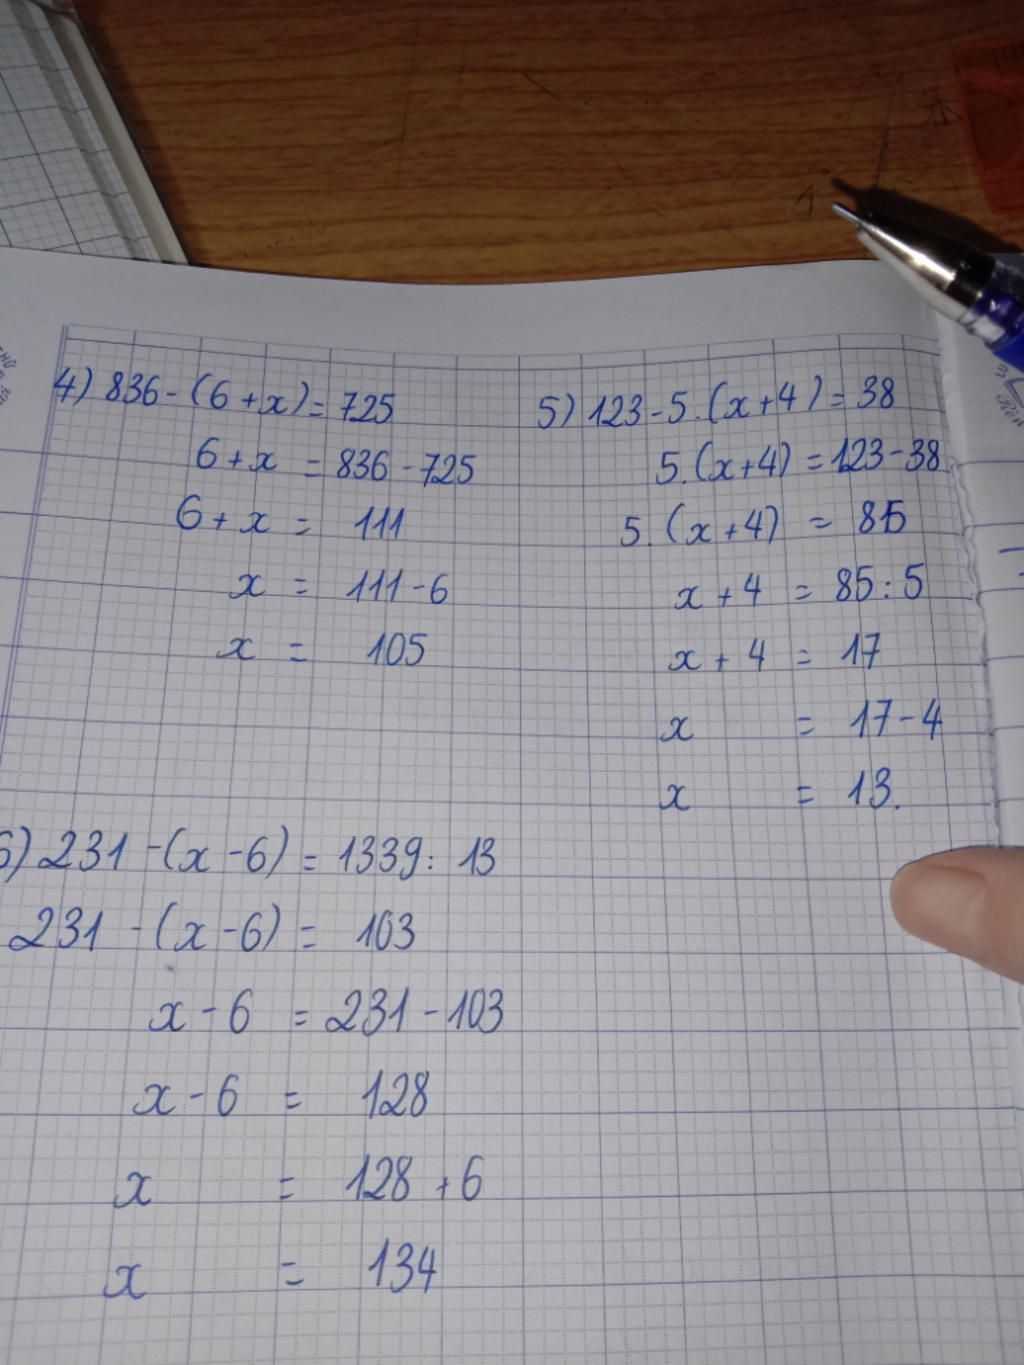 4) 836 - (6 + x) = 725
6 + x = 836 - 725
6 + x = 111
x = 111 - 6
x = 105
5) 123 - 5. (x + 4) = 38
5. (x + 4) = 123 - 38
5. (x + 4) = 85
x + 4 = 85 : 5
x + 4 = 17
x = 17 - 4
x = 13.
6) 231 - (x - 6) = 1339 : 13
231 - (x - 6) = 103
x - 6 = 231 - 103
x - 6 = 128
x = 128 + 6
x = 134